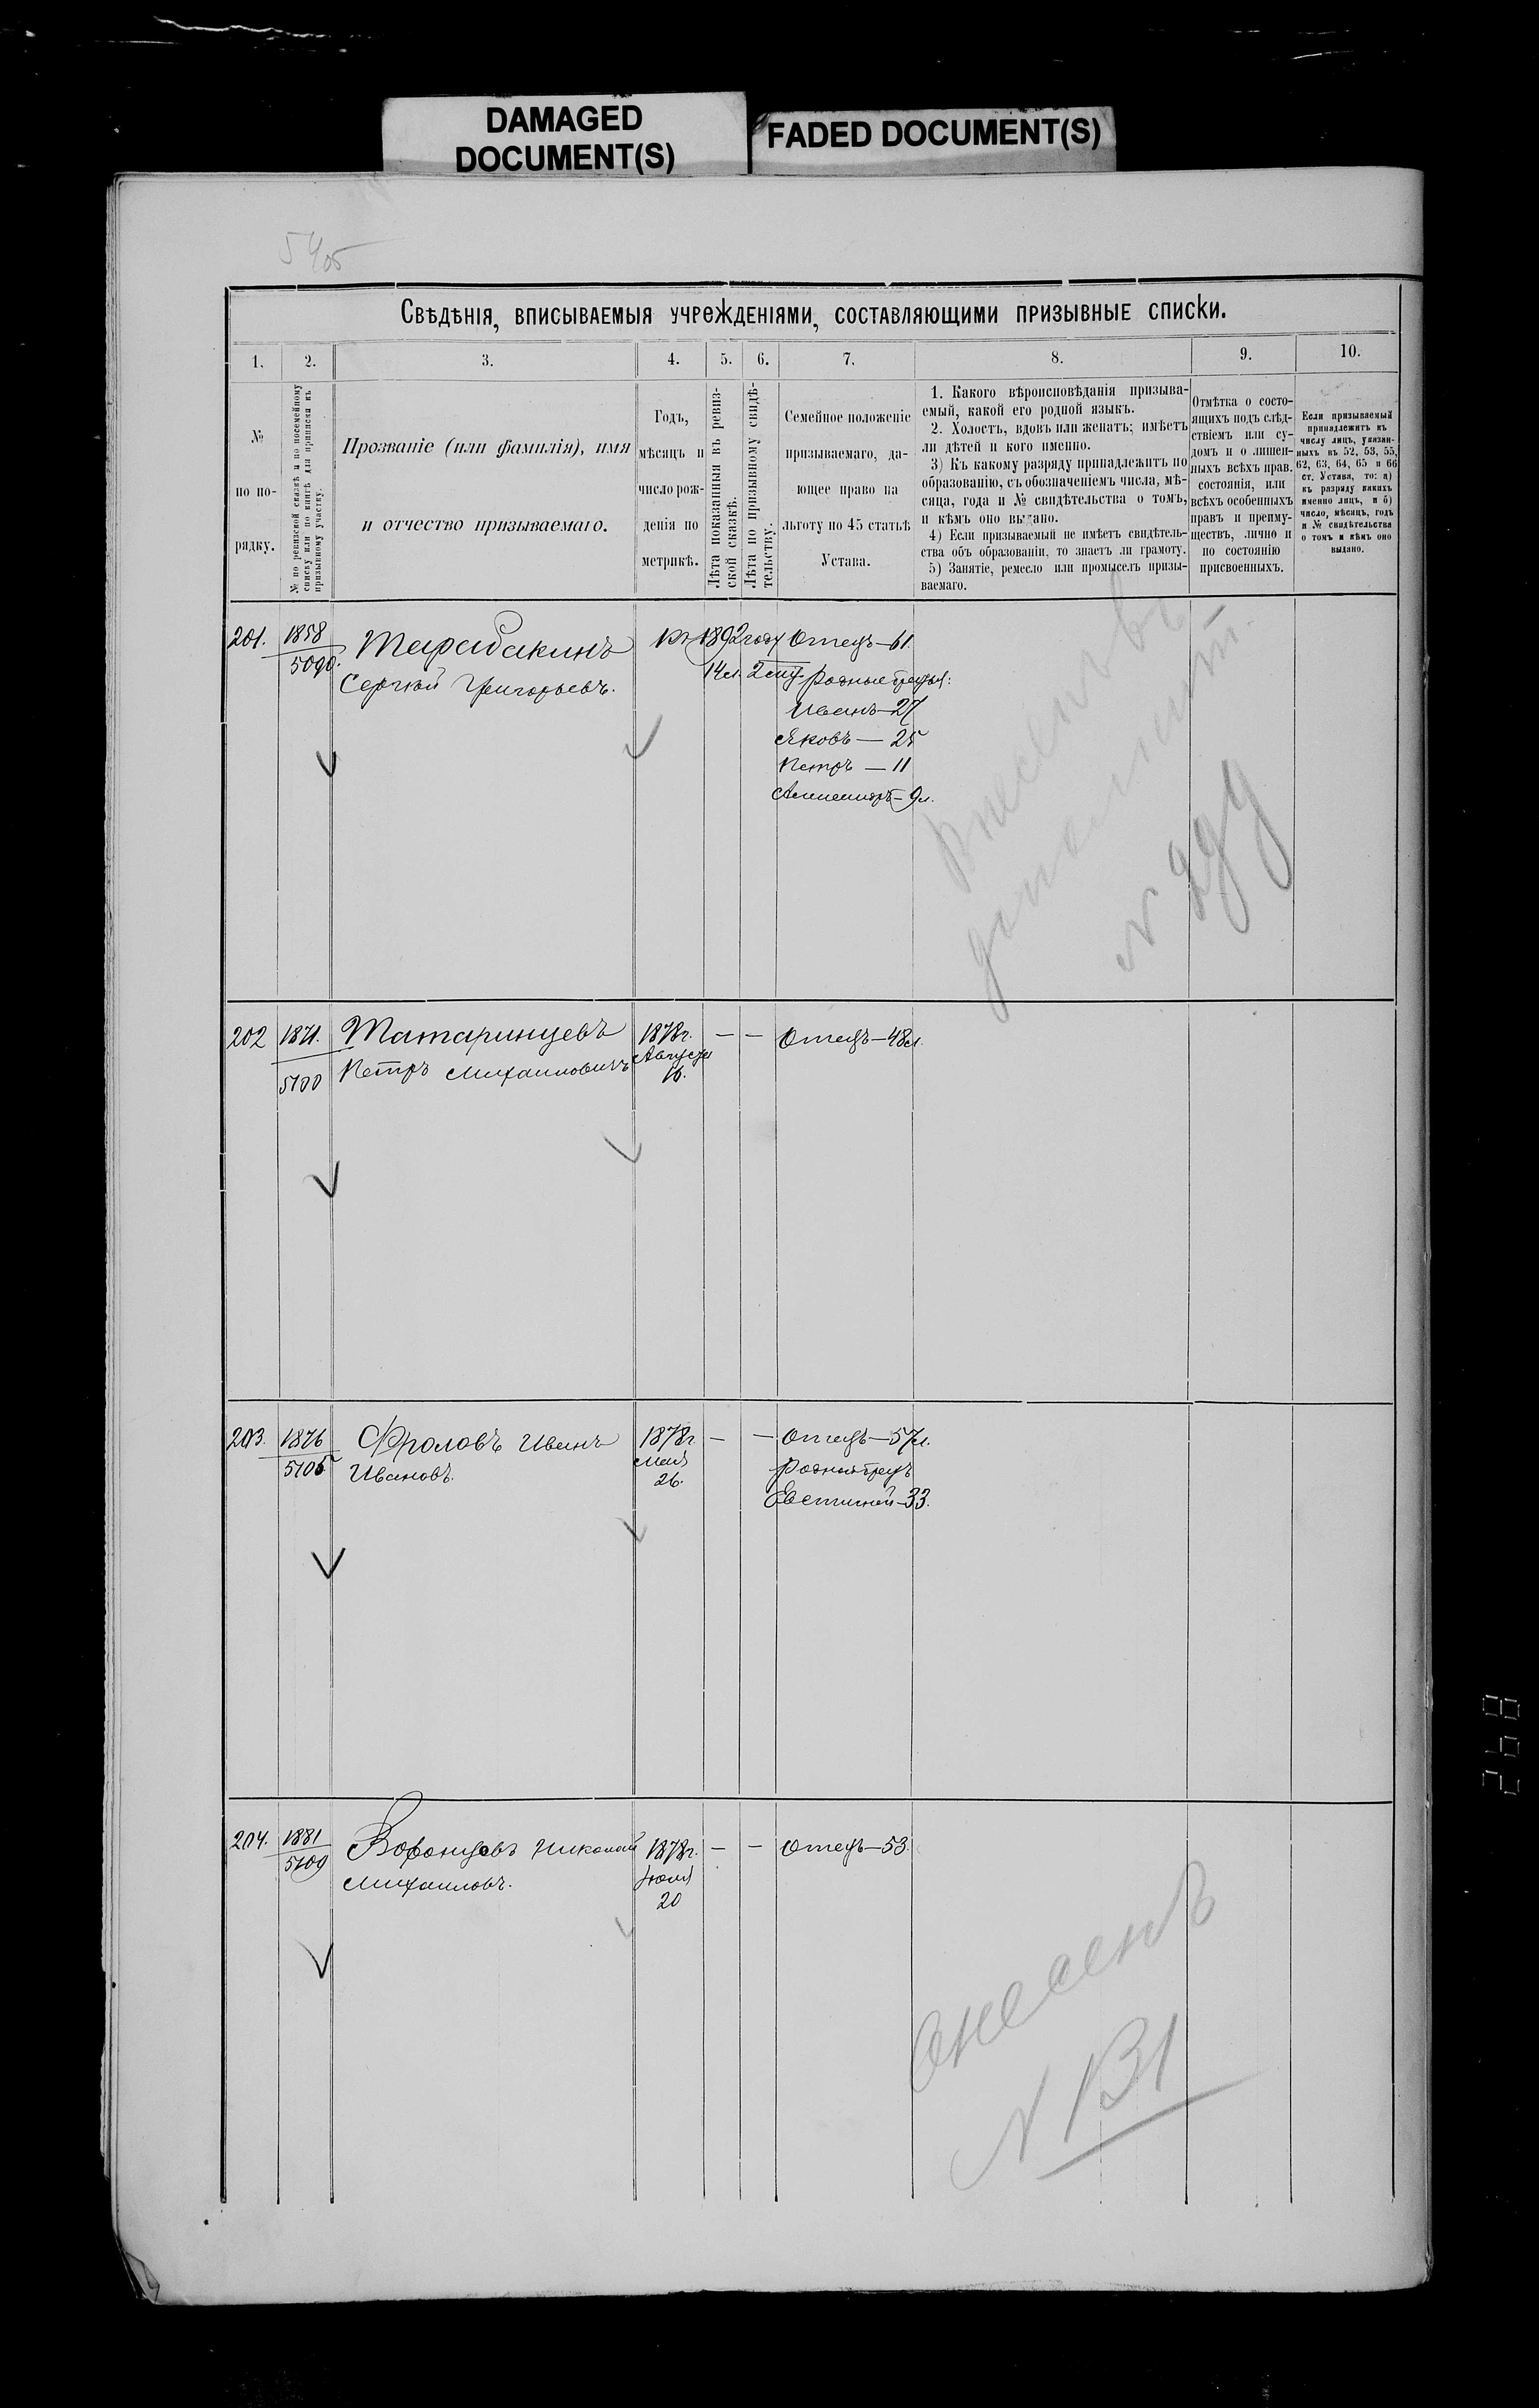 DAMAGED
DOCUMENT(S)
FADED DOCUMENT(S)
Свѣдѣнія, вписываемыя учрежденіями, составляющими призывные списки.
1. 2. 3. 4. 5. 6. 7. 8. 9. 10.
№
по по-
рядку.
№ по ревизской сказкѣ и по посемейному
списку или по книгѣ для приписки къ
призывному участку.
Прозваніе (или фамилія), имя
и отчество призываемаго.
Годъ,
мѣсяцъ и
число рож-
денія по
метрикѣ.
Лѣта показанныя въ ревиз-
ской сказкѣ.
Лѣта по призывному свидѣ-
тельству.
Семейное положеніе
призываемаго, да-
ющее право на
льготу по 45 статьѣ
Устава.
1. Какого вѣроисповѣданія призыва-
емый, какой его родной языкъ.
2. Холостъ, вдовъ или женатъ; имѣетъ
ли дѣтей и кого именно.
3) Къ какому разряду принадлежитъ по
образованію, съ обозначеніемъ числа, мѣ-
сяца, года и № свидѣтельства о томъ,
и кѣмъ оно выдано.
4) Если призываемый не имѣетъ свидѣтель-
ства объ образованіи, то знаетъ ли грамоту.
5) Занятіе, ремесло или промыселъ призы-
ваемаго.
Отмѣтка о состо-
ящихъ подъ слѣд-
ствіемъ или су-
домъ и о лишен-
ныхъ всѣхъ прав.
состоянія, или
всѣхъ особенныхъ
правъ и преиму-
ществъ, лично и
по состоянію
присвоенныхъ.
Если призываемый
принадлежитъ къ
числу лицъ, указан-
ныхъ въ 52, 53, 55,
62, 63, 64, 65 и 66
ст. Устава, то: а)
къ разряду какихъ
именно лицъ, и б)
число, мѣсяцъ, годъ
и № свидѣтельства
о томъ и кѣмъ оно
выдано.
201. 1858 5090. Тарабакинъ
Сергѣй Григорьевъ.
1892 году
14 л.
Отецъ—61.
родные братья:
Иванъ—27
Яковъ—25
Петръ—11
внесенъ въ
№ 299
202 1871. 5100 Татаринцевъ
Петръ Михаиловичъ
1878 г.
Августа
16.
— — Отецъ—48 л.
203. 1876 5105 Фроловъ Иванъ
Ивановъ.
1878 г.
Мая
26.
— — Отецъ—57 л.
родной братъ
Евстигней—33.
204. 1881 5109 Воронцовъ Николай
Михаиловъ.
1878 г.
Іюля
20
— — Отецъ—53.
внесенъ
№ 131
268